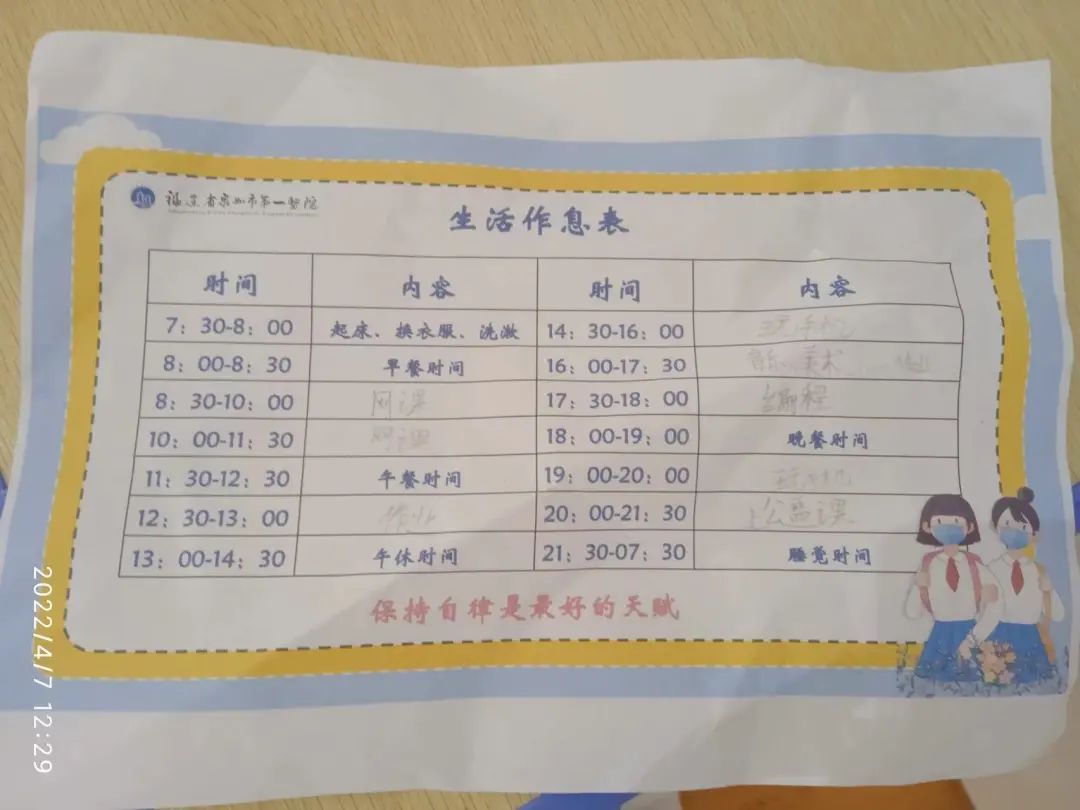 福建省泉州市第一医院
生活作息表
时间 内容 时间 内容
7：30-8：00 起床、换衣服、洗漱 14：30-16：00 玩手机
8：00-8：30 早餐时间 16：00-17：30 音乐、美术
8：30-10：00 网课 17：30-18：00 编程
10：00-11：30 网课 18：00-19：00 晚餐时间
11：30-12：30 午餐时间 19：00-20：00 玩手机
12：30-13：00 作业 20：00-21：30 上公益课
13：00-14：30 午休时间 21：30-07：30 睡觉时间
保持自律是最好的天赋
2022/4/7 12:29